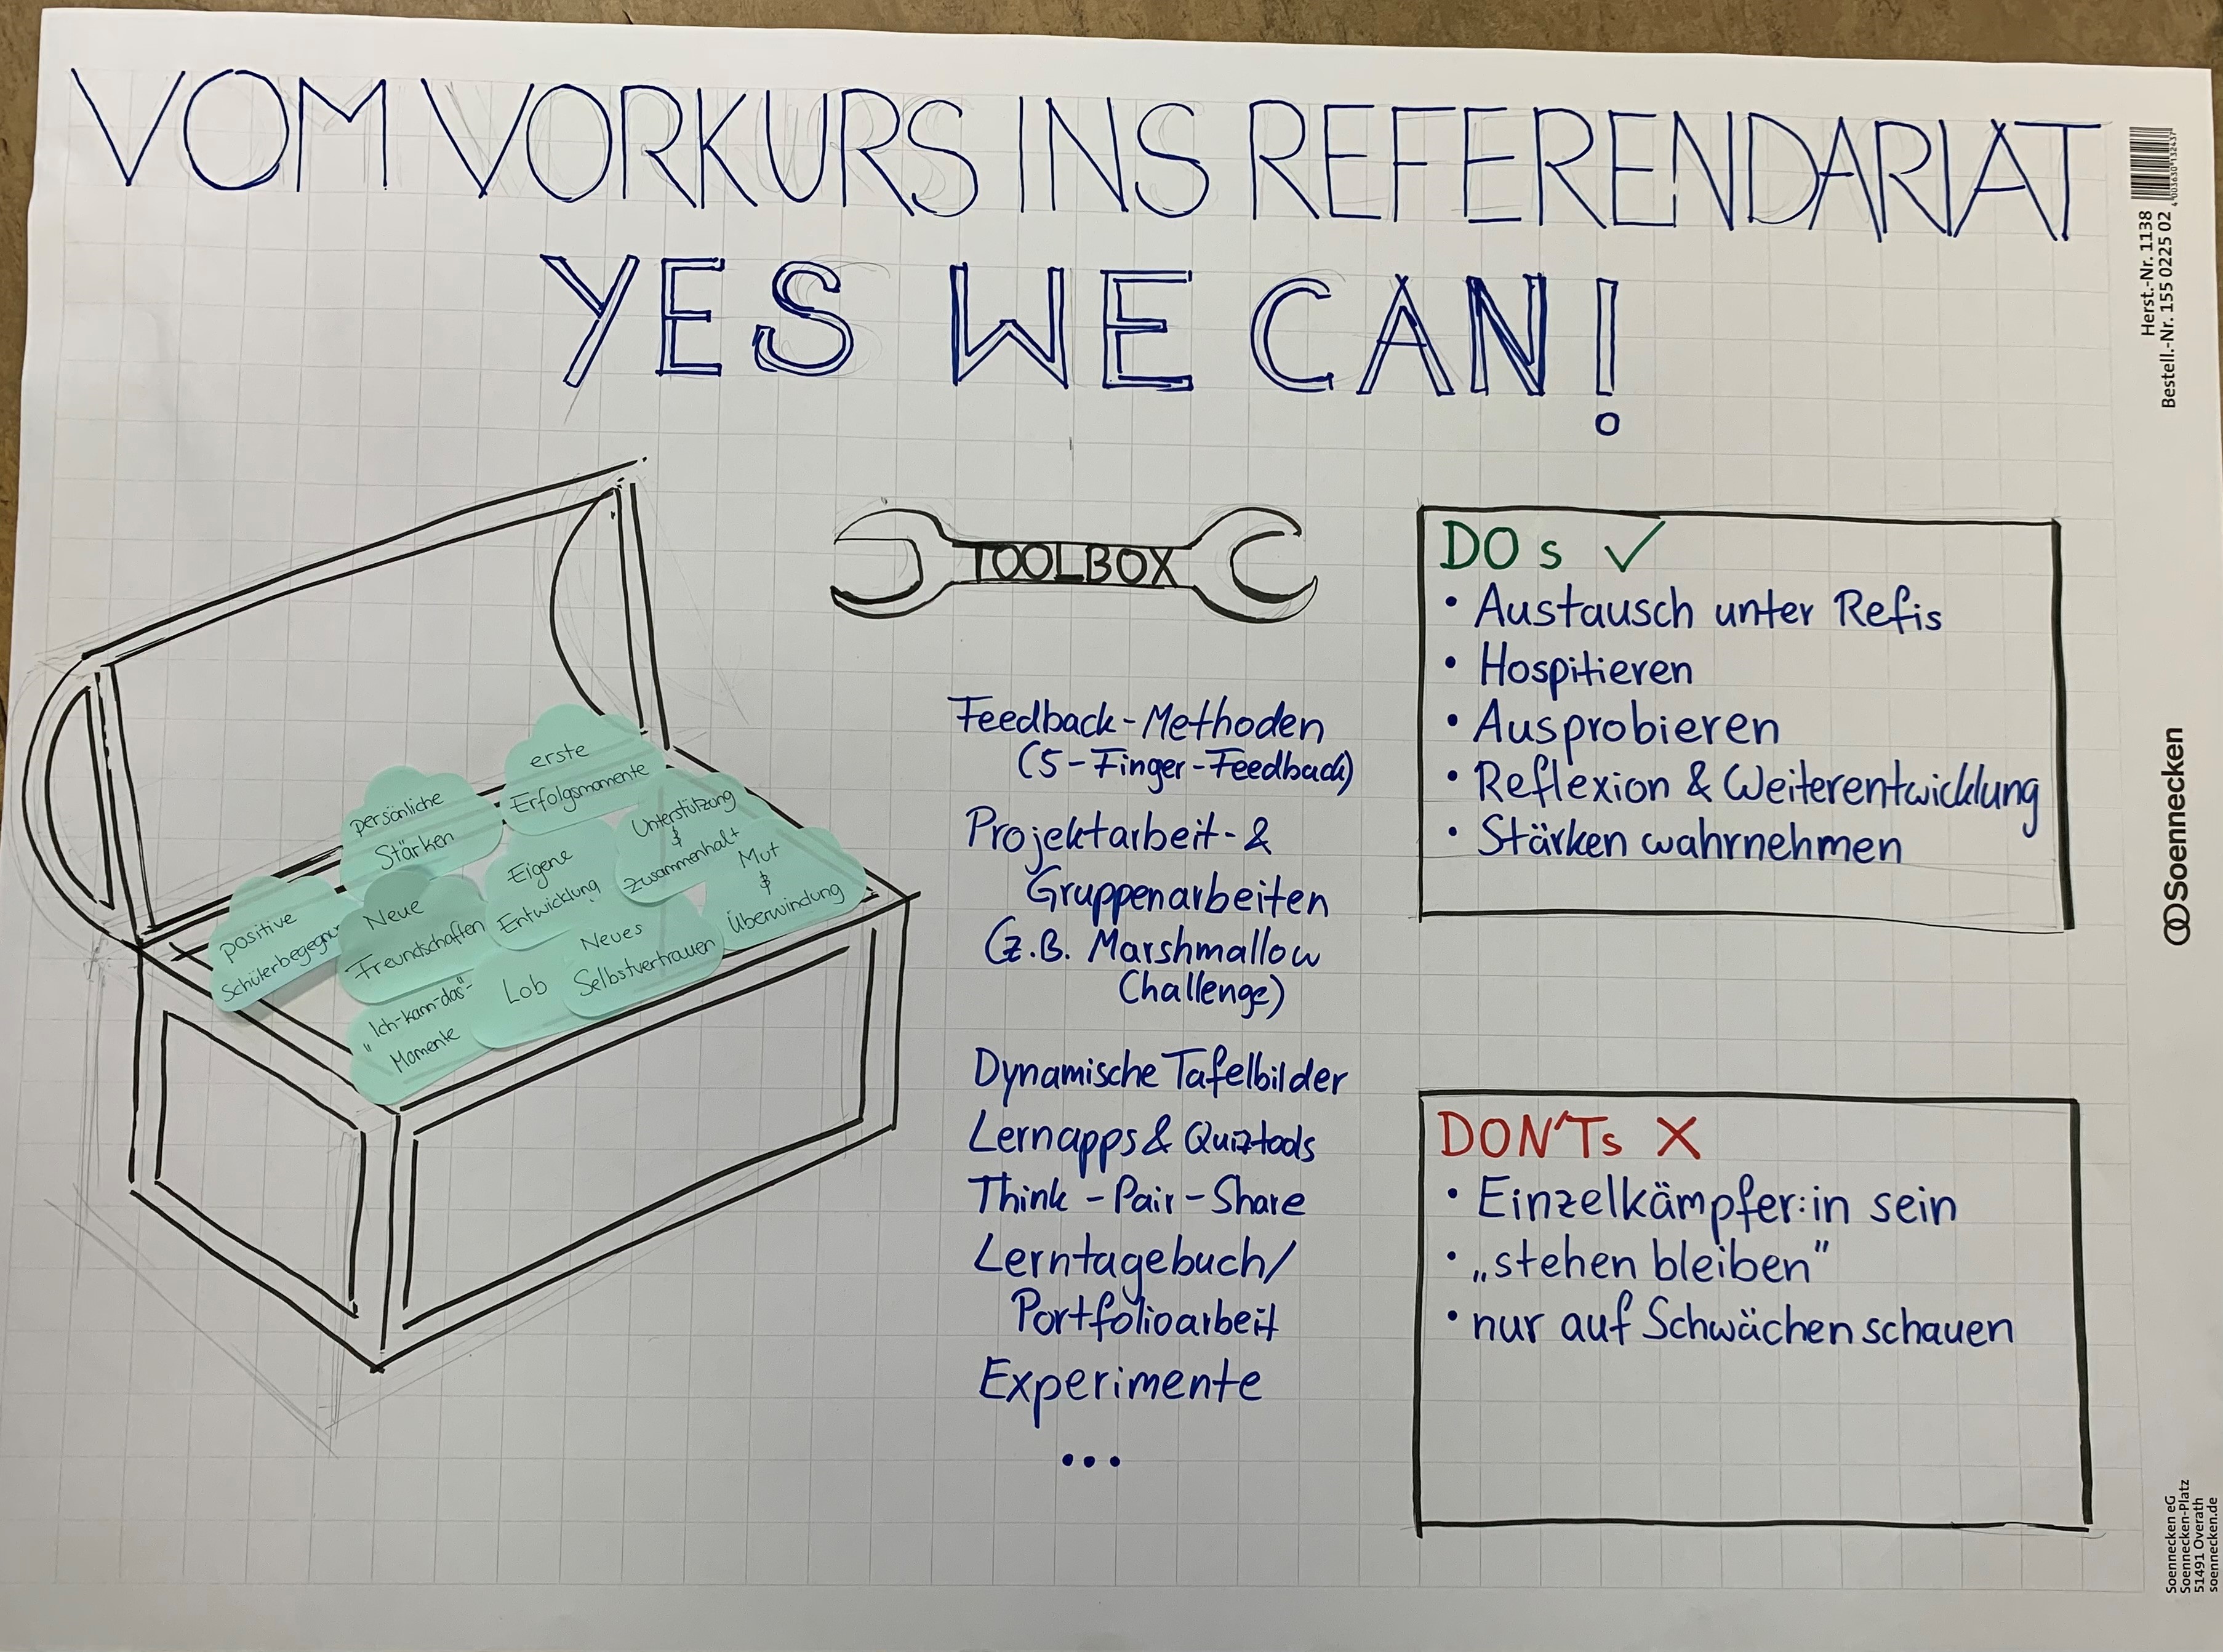 VOM VORKURS INS REFERENDARIAT
YES WE CAN!
erste
Erfolgsmomente
persönliche
Stärken
Unterstützung
&
Zusammenhalt
Eigene
Entwicklung
Mut
&
Überwindung
positive
Neue
Freundschaften
Neues
Selbstvertrauen
Lob
„Ich-kann-das"-
Momente
TOOLBOX
Feedback-Methoden
(5-Finger-Feedback)
Projektarbeit- &
Gruppenarbeiten
(z.B. Marshmallow
Challenge)
Dynamische Tafelbilder
Lernapps & Quiztools
Think-Pair-Share
Lerntagebuch/
Portfolioarbeit
Experimente
...
DOs ✓
• Austausch unter Refis
• Hospitieren
• Ausprobieren
• Reflexion & Weiterentwicklung
• Stärken wahrnehmen
DON'Ts X
• Einzelkämpfer:in sein
• „stehen bleiben"
• nur auf Schwächen schauen
Herst.-Nr. 1138
Bestell.-Nr. 155 0225 02
Soennecken
Soennecken eG
Soennecken-Platz
51491 Overath
soennecken.de